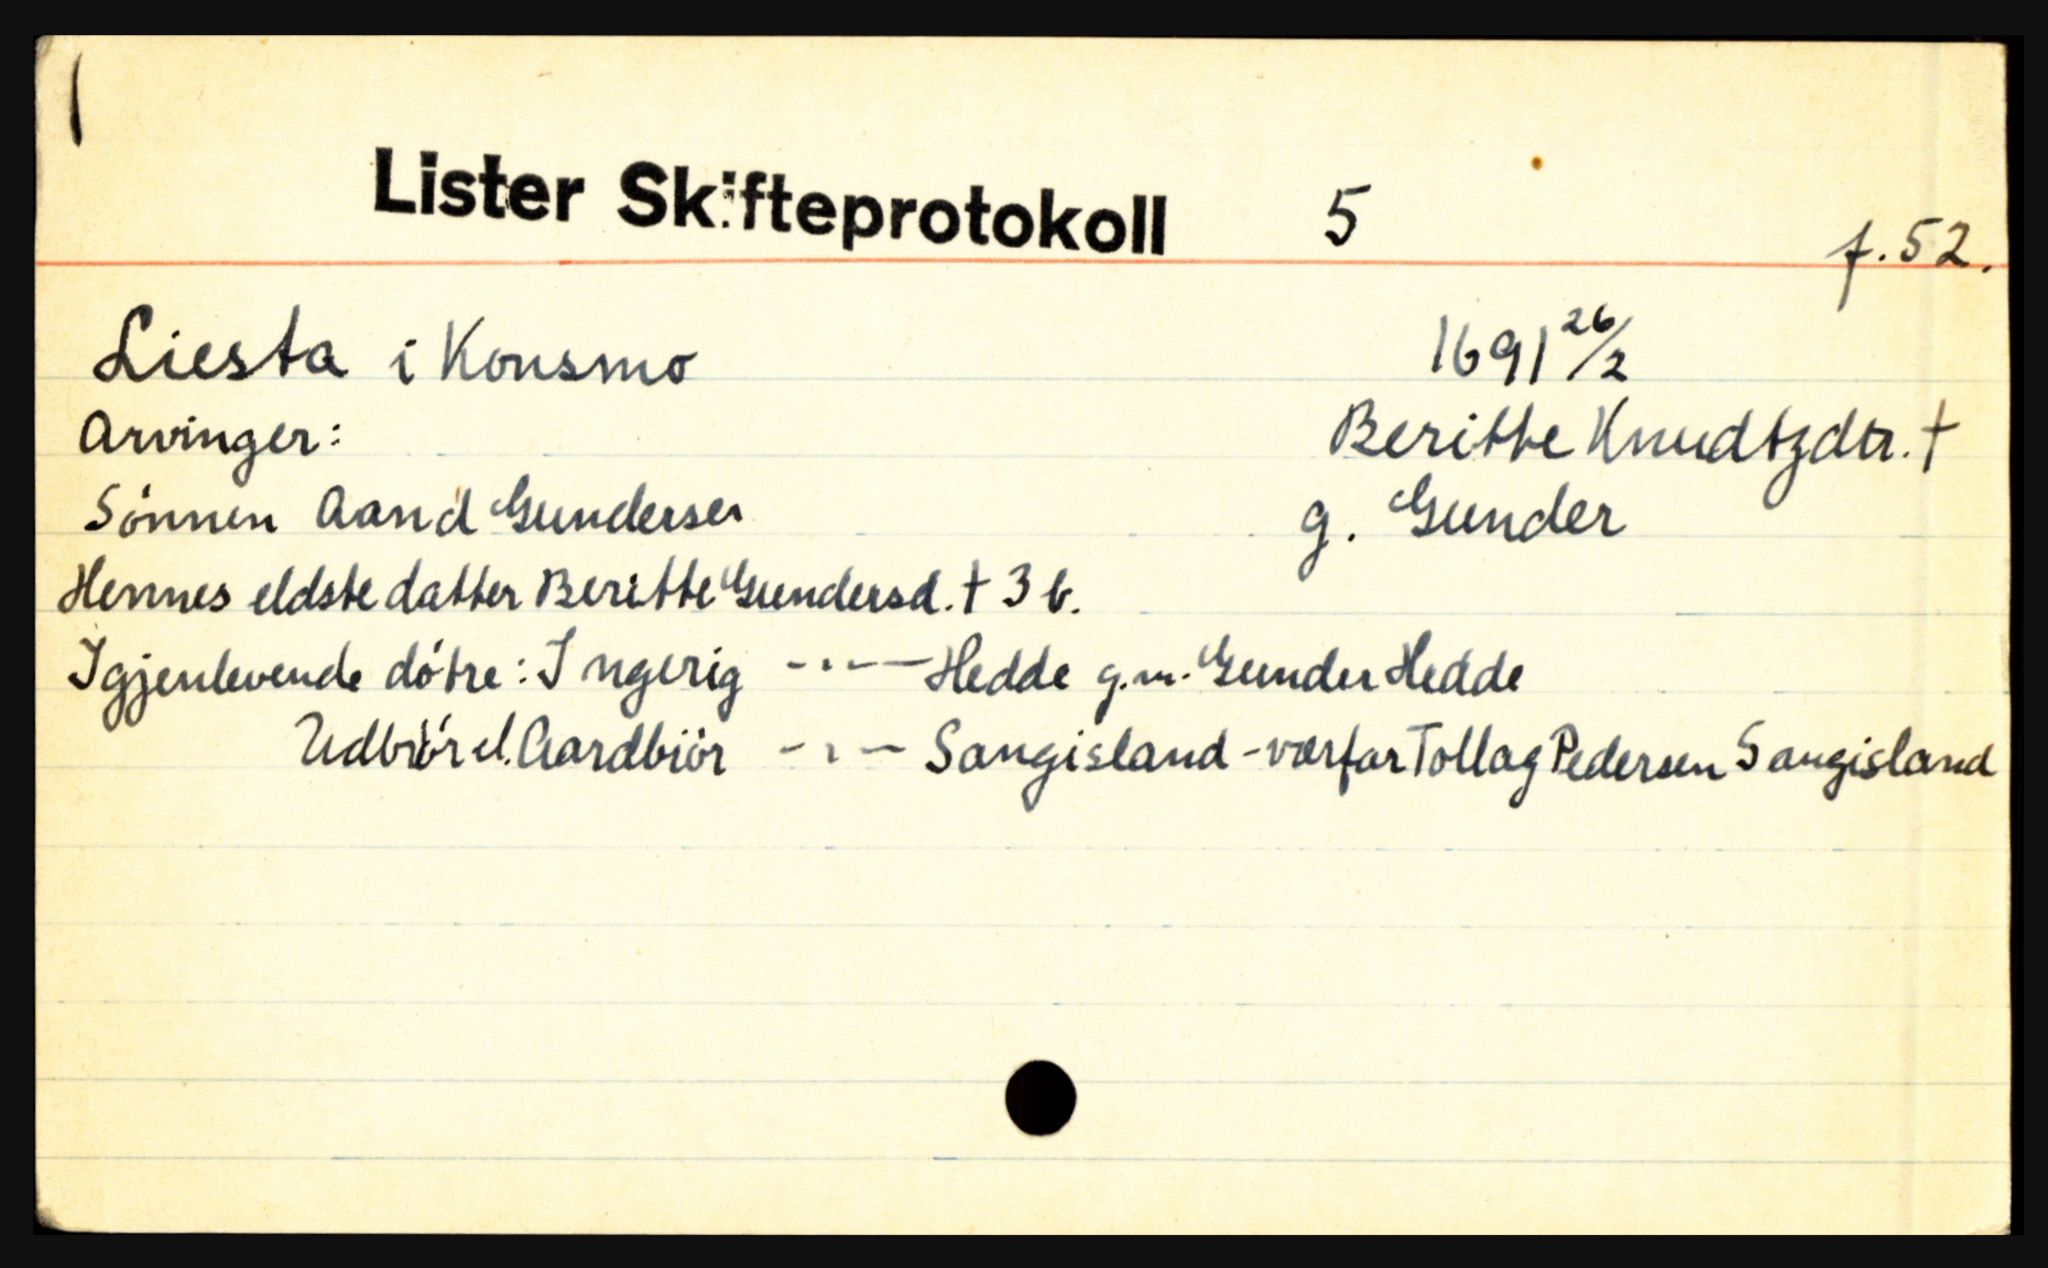 Lister Skifteprotokoll 5 f.52.
Liesta i Konsmo 1691 26/2
Arvinger: Beritte Knudtzdtr. †
Sönnen Aand Gundersen g. Gunder
Hennes eldste datter Beritte Gundersd. † 3 b.
Igjenlevende dótre: Ingerig -"- Hedde g.m. Gunder Hedde
Udbiör el. Aardbiör -"- Sangisland - værfar Tollag Pedersen Sangisland